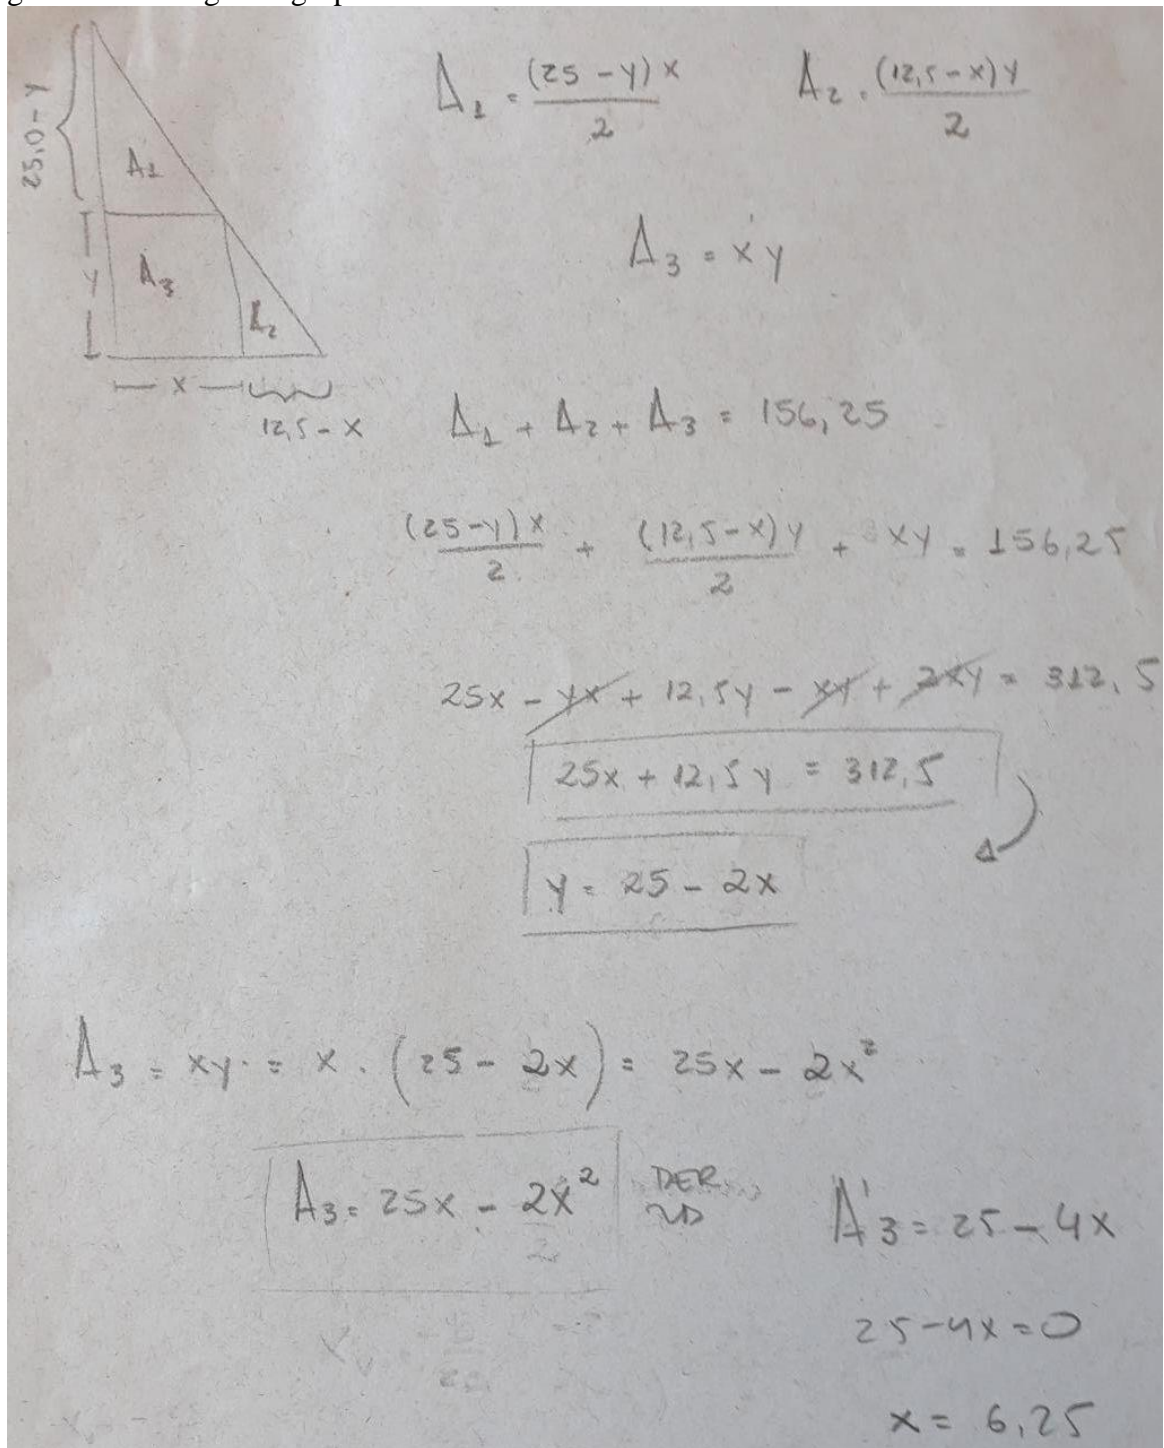 25,0 - y
A1
y
A3
A2
x
12,5 - x
A1 = (25 - y) x / 2
A2 = (12,5 - x) y / 2
A3 = x y
A1 + A2 + A3 = 156,25
(25 - y) x / 2 + (12,5 - x) y / 2 + xy = 156,25
25x - yx + 12,5y - xy + 2xy = 312,5
25x + 12,5y = 312,5
y = 25 - 2x
A3 = xy = x . (25 - 2x) = 25x - 2x²
A3 = 25x - 2x²
A'3 = 25 - 4x
25 - 4x = 0
x = 6,25